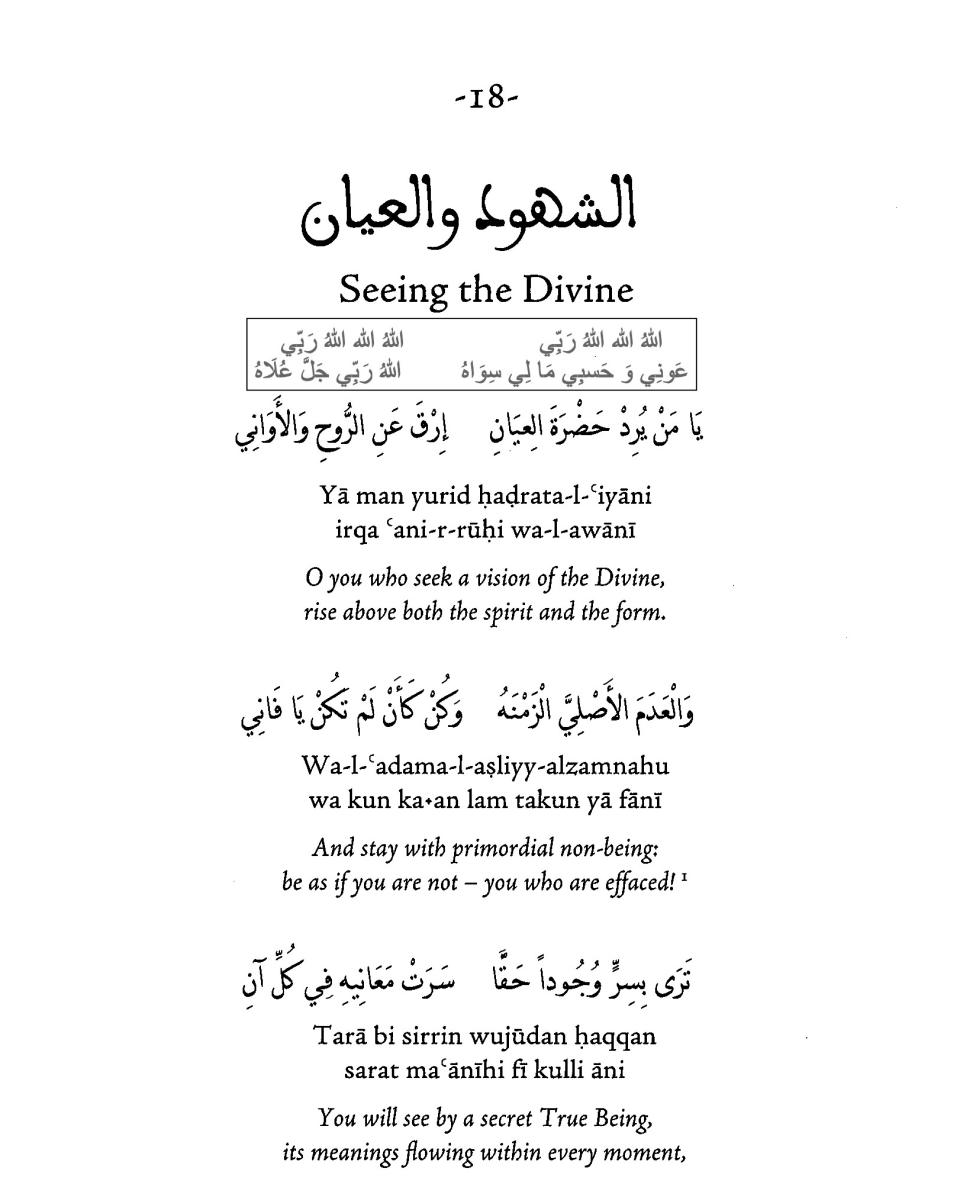 -18-
الشهود والعيان
Seeing the Divine
اللهُ الله اللهُ رَبِّي اللهُ الله اللهُ رَبِّي
عَونِي وَ حَسبِي مَا لِي سِوَاهُ اللهُ رَبِّي جَلَّ عُلَاهُ
يَا مَنْ يُرِدْ حَضْرَةَ العِيَانِ إِرْقَ عَنِ الرُّوحِ وَالأَوَانِي
Yā man yurid ḥaḍrata-l-ʿiyāni
irqa ʿani-r-rūḥi wa-l-awānī
O you who seek a vision of the Divine,
rise above both the spirit and the form.
وَالْعَدَمَ الأَصْلِيَّ الْزَمْنَهُ وَكُنْ كَأَنْ لَمْ تَكُنْ يَا فَانِي
Wa-l-ʿadama-l-aṣliyy-alzamnahu
wa kun ka•an lam takun yā fānī
And stay with primordial non-being:
be as if you are not – you who are effaced! ¹
تَرَى بِسِرٍّ وُجُوداً حَقَّا سَرَتْ مَعَانِيهِ فِي كُلِّ آنِ
Tarā bi sirrin wujūdan ḥaqqan
sarat maʿānīhi fī kulli āni
You will see by a secret True Being,
its meanings flowing within every moment,